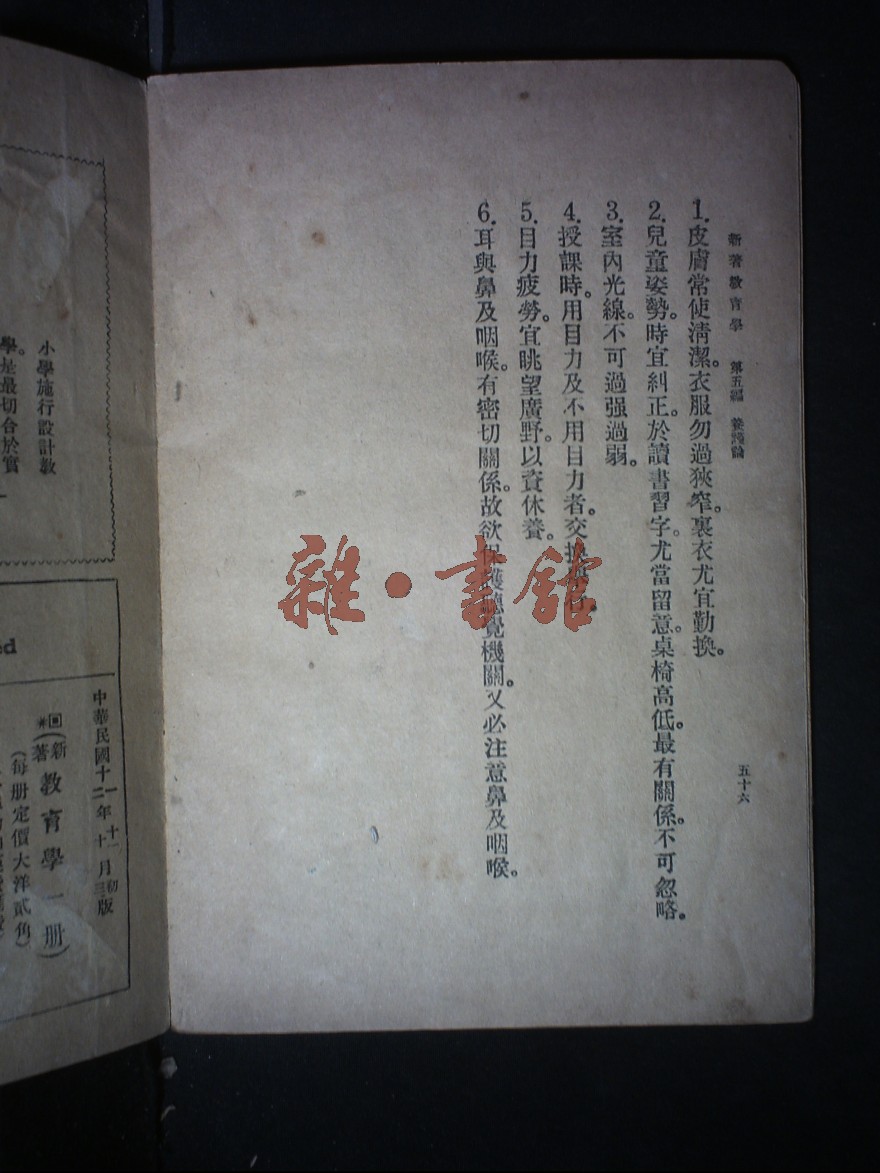 新著敎育學　第五編　養護論
五十六
1.皮膚常使淸潔。衣服勿過狹窄。裏衣尤宜勤換。
2.兒童姿勢。時宜糾正。於讀書習字。尤當留意。桌椅高低。最有關係。不可忽略。
3.室內光線。不可過强過弱。
4.授課時。用目力及不用目力者。交換
5.目力疲勞。宜眺望廣野。以資休養。
6.耳與鼻及咽喉。有密切關係。故欲保護聽覺機關。又必注意鼻及咽喉。
雜·書館
小學施行設計敎
學。是最切合於實
ed
中華民國十一年十一月初版
十二年十月三版
新著敎育學一册
(每册定價大洋貳角)